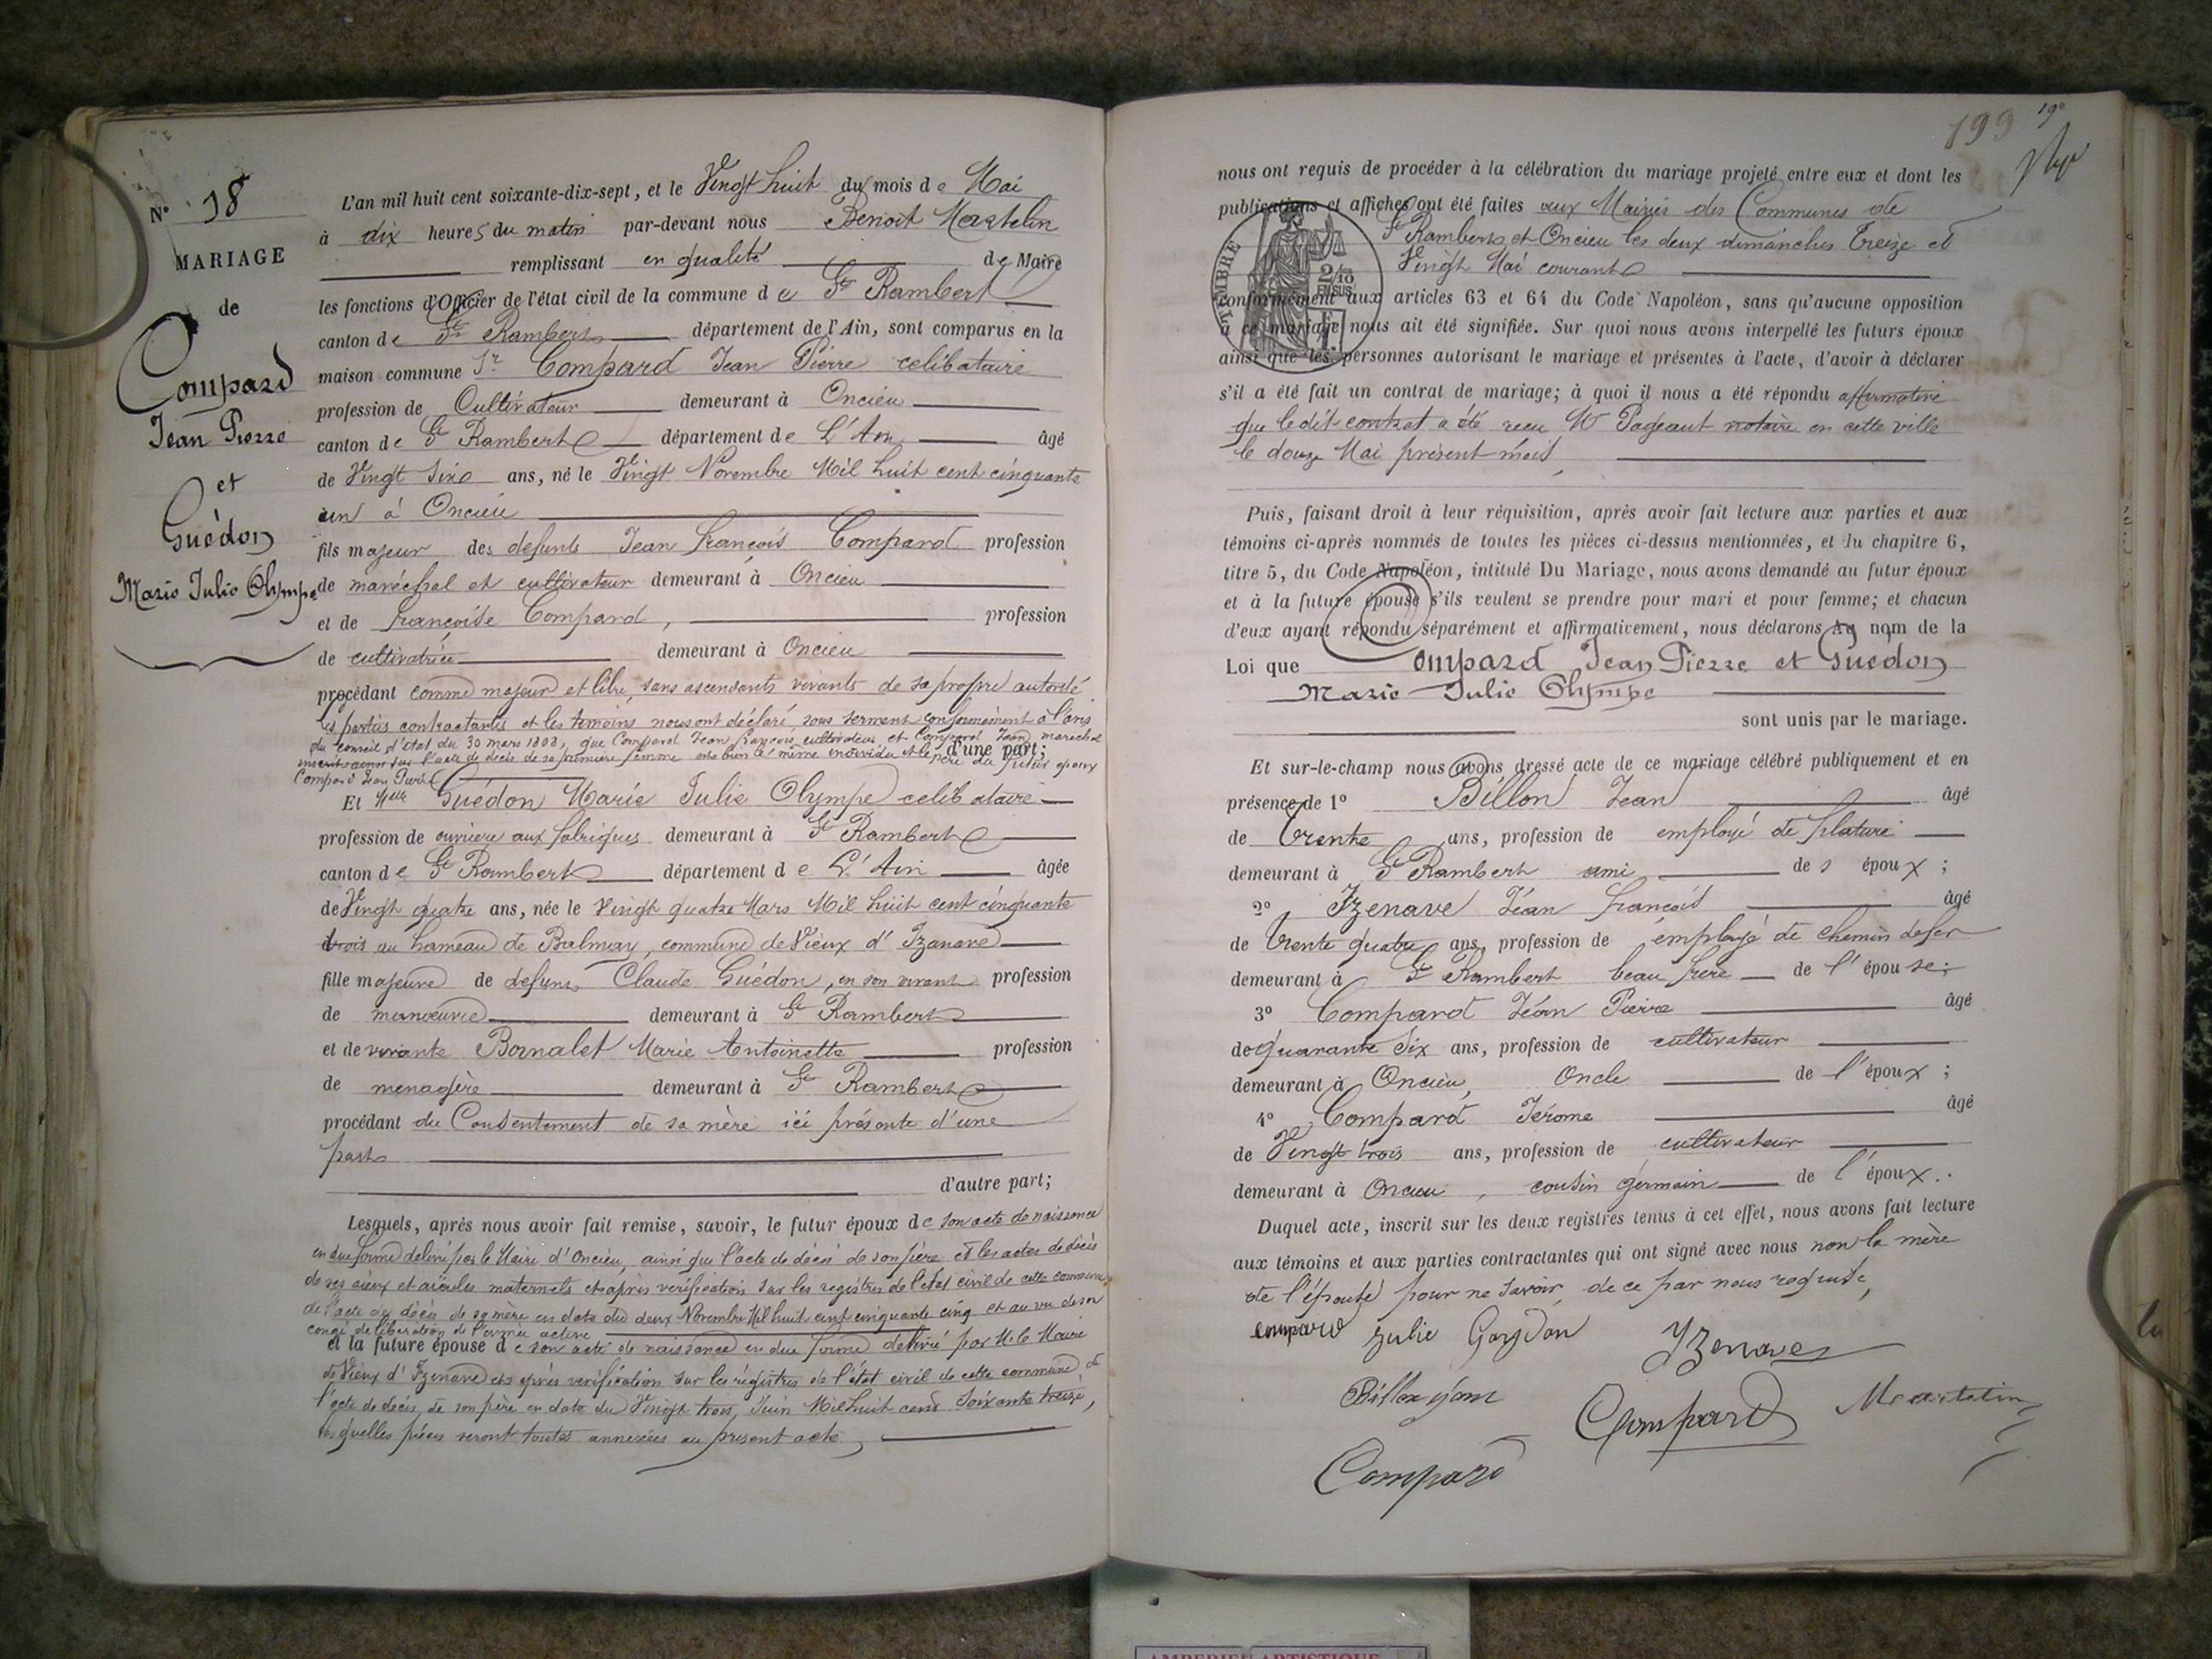 N° 18
MARIAGE
de
Compard
Jean Pierre
et
Guédon
Marie Julie Olympe
L'an mil huit cent soixante-dix-sept, et le Vingt huit du mois de Mai
à dix heures du matin par-devant nous Benoit Martelin
remplissant en qualité de Maire
les fonctions d'Officier de l'état civil de la commune de St Rambert
canton de St Rambert département de l'Ain, sont comparus en la
maison commune Sr Compard Jean Pierre celibataire
profession de Cultivateur demeurant à Oncieu
canton de St Rambert département de L'Ain âgé
de Vingt Six ans, né le Vingt Novembre Mil huit cent cinquante
un à Oncieu
fils majeur des defunts Jean françois Compard profession
de maréchal et cultivateur demeurant à Oncieu
et de françoise Compard, profession
de cultivatrice demeurant à Oncieu
procédant comme majeur et libre, sans ascendants vivants de sa propre autorité
les parties contractantes et les temoins nous ont déclaré, sous serment conformément à l'avis
du conseil d'état du 30 mars 1808, que Compard Jean françois cultivateur et Compard Jean marechal
inscrit sur l'acte de décès de sa première femme ont bien le même individu et le père du futur époux
Compard Jean Pierre
d'une part;
Et Melle Guédon Marie Julie Olympe celibataire
profession de ouvriere aux fabriques demeurant à St Rambert
canton de St Rambert département de L'Ain âgée
de Vingt quatre ans, née le Vingt quatre Mars Mil huit cent cinquante
trois au hameau de Balmay, commune de Vieux d'Izenave
fille majeure de defunt Claude Guédon, en son vivant profession
de manœuvre demeurant à St Rambert
et de vivante Bornalet Marie Antoinette profession
de menagère demeurant à St Rambert
procédant du Consentement de sa mère ici présente d'une
part
d'autre part;
Lesquels, après nous avoir fait remise, savoir, le futur époux de son acte de naissance
en due forme delivré par le Maire d'Oncieu, ainsi que l'acte de décès de son père et les actes de décès
de ses aïeux et aïeules maternels et après verification sur les registres de l'état civil de cette commune
de l'acte de décès de sa mère en date du deux Novembre Mil huit cent cinquante cinq et au vu de son
congé de libération de l'armée active
et la future épouse de son acte de naissance en due forme delivré par M. le Maire
de Vieux d'Izenave et après verification sur les registres de l'état civil de cette commune de
l'acte de décès de son père en date du Vingt trois Juin Mil huit cent Soixante treize,
lesquelles pièces seront toutes annexées au present acte,
199
19e
nous ont requis de procéder à la célébration du mariage projeté entre eux et dont les
publications et affiches ont été faites aux Mairies des Communes de
St Rambert et Oncieu les deux dimanches Treize et
Vingt Mai courant
TIMBRE
2/10
EN SUS
conformément aux articles 63 et 64 du Code Napoléon, sans qu'aucune opposition
à ce mariage nous ait été signifiée. Sur quoi nous avons interpellé les futurs époux
ainsi que les personnes autorisant le mariage et présentes à l'acte, d'avoir à déclarer
s'il a été fait un contrat de mariage; à quoi il nous a été répondu affirmative
que ledit contrat a été recu Me Pageaut notaire en cette ville
le douze Mai présent mois
Puis, faisant droit à leur réquisition, après avoir fait lecture aux parties et aux
témoins ci-après nommés de toutes les pièces ci-dessus mentionnées, et du chapitre 6,
titre 5, du Code Napoléon, intitulé Du Mariage, nous avons demandé au futur époux
et à la future épouse s'ils veulent se prendre pour mari et pour femme; et chacun
d'eux ayant répondu séparément et affirmativement, nous déclarons au nom de la
Loi que Compard Jean Pierre et Guédon
Marie Julie Olympe
sont unis par le mariage.
Et sur-le-champ nous avons dressé acte de ce mariage célébré publiquement et en
présence de 1° Billon Jean âgé
de Trente ans, profession de employé de filature
demeurant à St Rambert ami des époux;
2° Izenave Jean françois âgé
de Trente quatre ans, profession de employé de chemin de fer
demeurant à St Rambert beau frère de l'épouse;
3° Compard Jean Pierre âgé
de quarante Six ans, profession de cultivateur
demeurant à Oncieu, Oncle de l'époux;
4° Compard Jérome âgé
de Vingt trois ans, profession de cultivateur
demeurant à Oncieu, cousin germain de l'époux.
Duquel acte, inscrit sur les deux registres tenus à cet effet, nous avons fait lecture
aux témoins et aux parties contractantes qui ont signé avec nous non la mère
de l'épouse pour ne savoir, de ce par nous requise,
compard Julie Gaydon Yzenave
Billon jean Compard Martelin
Compard
AMBERIEU ARTISTIQUE